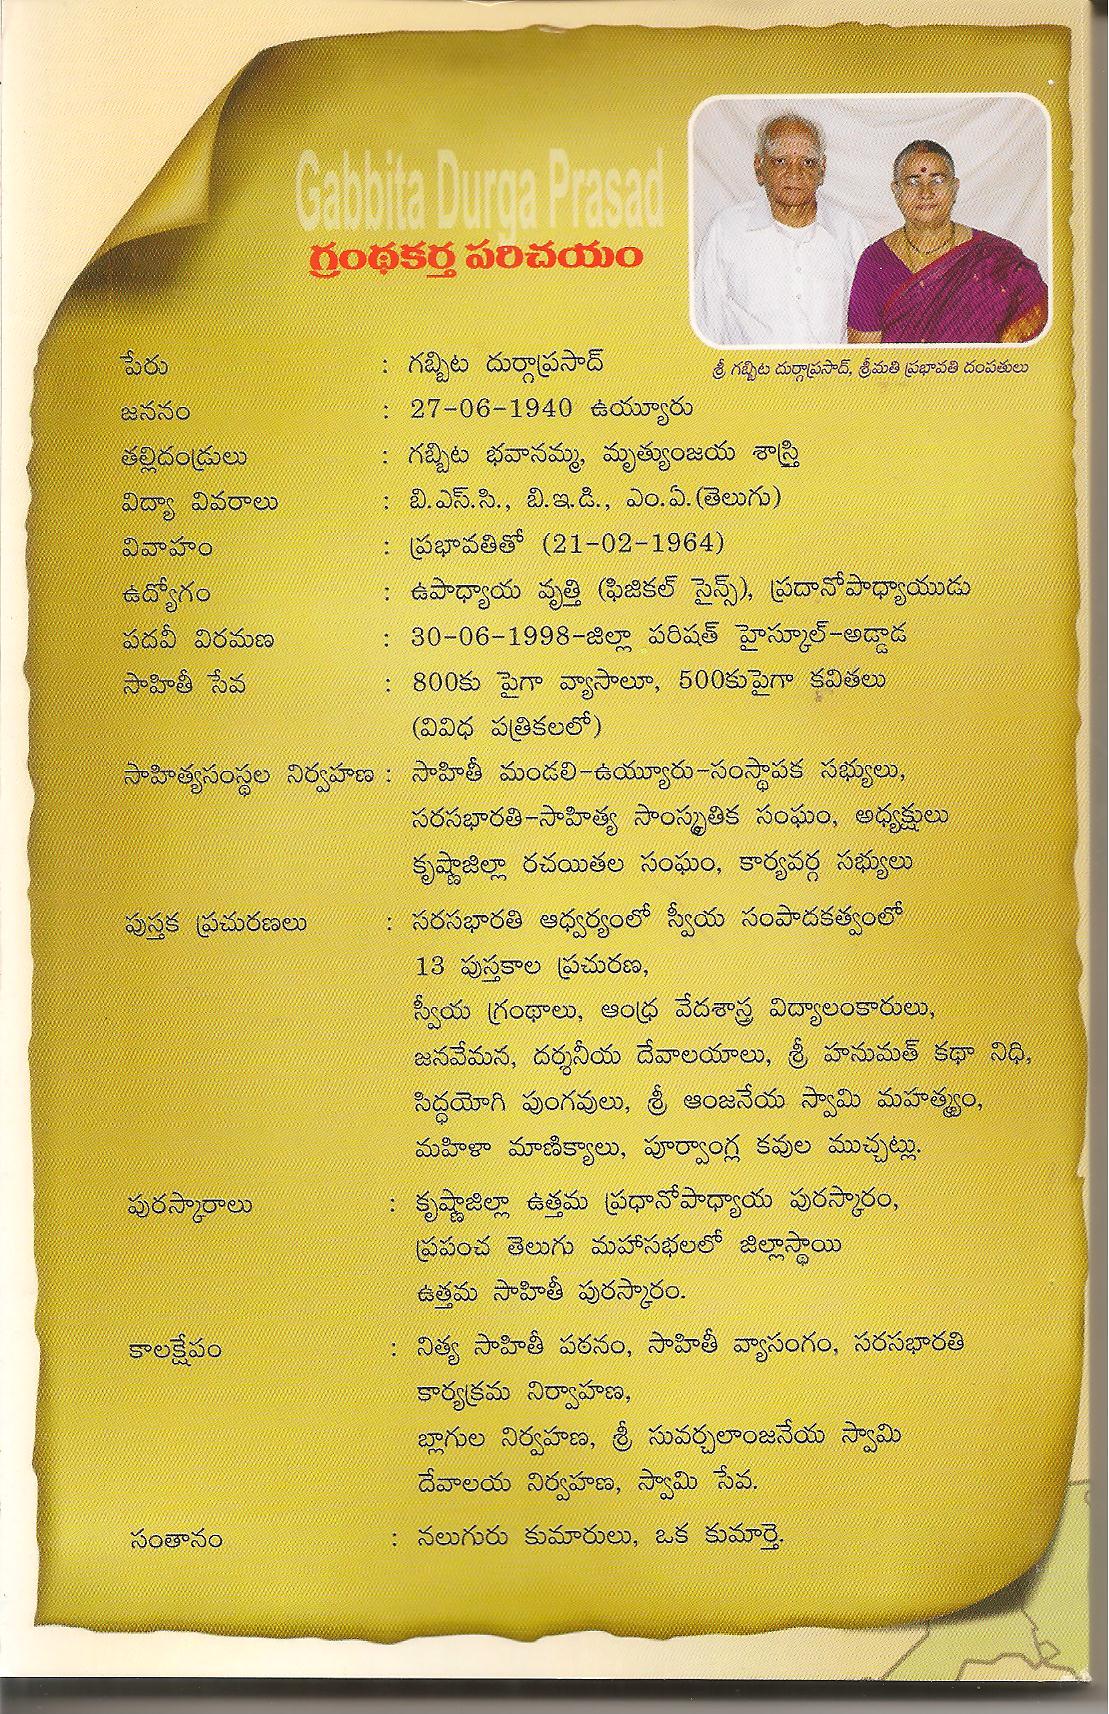 Gabbita Durga Prasad
గ్రంథకర్త పరిచయం
శ్రీ గబ్బిట దుర్గాప్రసాద్, శ్రీమతి ప్రభావతి దంపతులు
పేరు : గబ్బిట దుర్గాప్రసాద్
జననం : 27-06-1940 ఉయ్యూరు
తల్లిదండ్రులు : గబ్బిట భవానమ్మ, మృత్యుంజయ శాస్త్రి
విద్యా వివరాలు : బి.ఎస్.సి., బి.ఇ.డి., ఎం.ఏ.(తెలుగు)
వివాహం : ప్రభావతితో (21-02-1964)
ఉద్యోగం : ఉపాధ్యాయ వృత్తి (ఫిజికల్ సైన్స్), ప్రదానోపాధ్యాయుడు
పదవీ విరమణ : 30-06-1998-జిల్లా పరిషత్ హైస్కూల్-అడ్డాడ
సాహితీ సేవ : 800కు పైగా వ్యాసాలూ, 500కుపైగా కవితలు
(వివిధ పత్రికలలో)
సాహిత్యసంస్థల నిర్వహణ : సాహితీ మండలి-ఉయ్యూరు-సంస్థాపక సభ్యులు,
సరసభారతి-సాహిత్య సాంస్కృతిక సంఘం, అధ్యక్షులు
కృష్ణాజిల్లా రచయితల సంఘం, కార్యవర్గ సభ్యులు
పుస్తక ప్రచురణలు : సరసభారతి ఆధ్వర్యంలో స్వీయ సంపాదకత్వంలో
13 పుస్తకాల ప్రచురణ,
స్వీయ గ్రంథాలు, ఆంధ్ర వేదశాస్త్ర విద్యాలంకారులు,
జనవేమన, దర్శనీయ దేవాలయాలు, శ్రీ హనుమత్ కథా నిధి,
సిద్ధయోగి పుంగవులు, శ్రీ ఆంజనేయ స్వామి మహత్మ్యం,
మహిళా మాణిక్యాలు, పూర్వాంగ్ల కవుల ముచ్చట్లు.
పురస్కారాలు : కృష్ణాజిల్లా ఉత్తమ ప్రధానోపాధ్యాయ పురస్కారం,
ప్రపంచ తెలుగు మహాసభలలో జిల్లాస్థాయి
ఉత్తమ సాహితీ పురస్కారం.
కాలక్షేపం : నిత్య సాహితీ పఠనం, సాహితీ వ్యాసంగం, సరసభారతి
కార్యక్రమ నిర్వాహణ,
బ్లాగుల నిర్వహణ, శ్రీ సువర్చలాంజనేయ స్వామి
దేవాలయ నిర్వహణ, స్వామి సేవ.
సంతానం : నలుగురు కుమారులు, ఒక కుమార్తె.